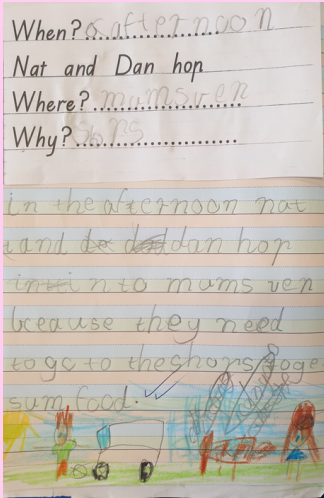 When? afternoon
Nat and Dan hop
Where? mumsven
Why? shops
in the afternoon nat
and dan hop
in to mums ven
because they need
to go to the shops to ge
sum food.